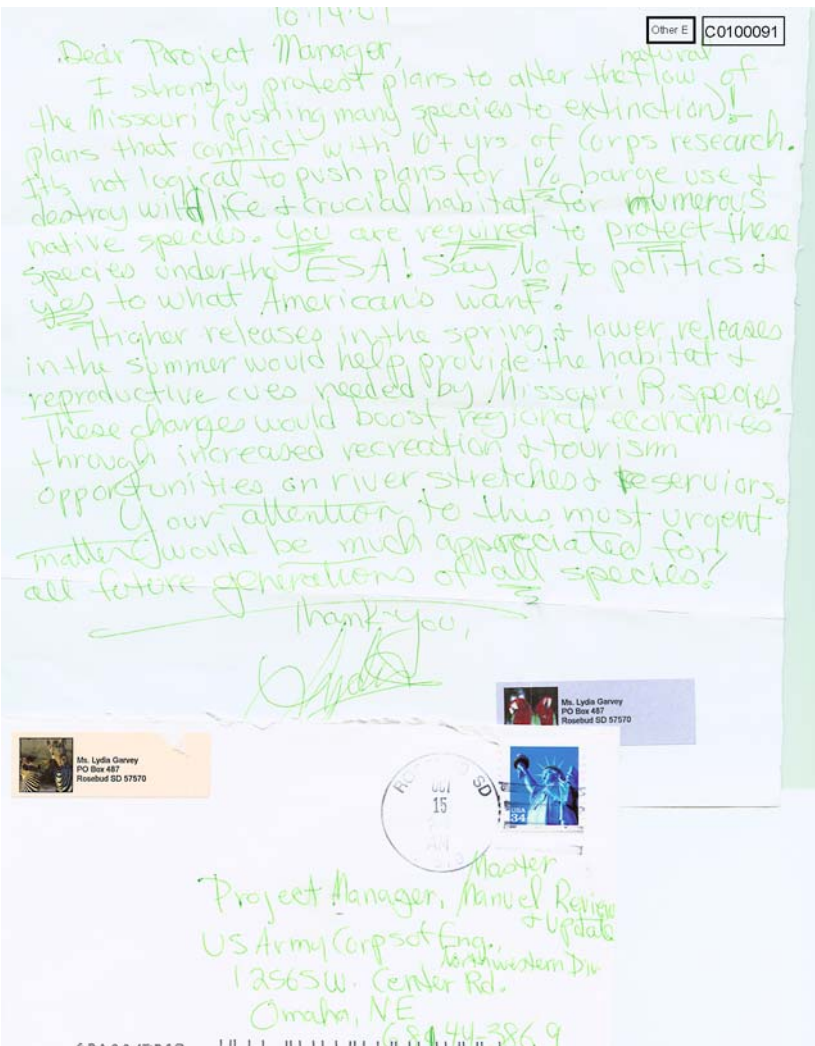 10.14.01
Other E C0100091
Dear Project Manager,
I strongly protest plans to alter the natural flow of
the Missouri (pushing many species to extinction)!
plans that conflict with 10+ yrs. of Corps research.
It's not logical to push plans for 1% barge use &
destroy wildlife & crucial habitat for numerous
native species. You are required to protect these
species under the ESA! Say No to politics &
yes to what American's want!
Higher releases in the spring & lower releases
in the summer would help provide the habitat &
reproductive cues needed by Missouri R. species.
These changes would boost regional economies
through increased recreation & tourism
opportunities on river stretches & reserviors.
Your attention to this most urgent
matter would be much appreciated for
all future generations of all species!
Thank-you,
Lydia
Ms. Lydia Garvey
PO Box 487
Rosebud SD 57570
Ms. Lydia Garvey
PO Box 487
Rosebud SD 57570
SD
OCT
15
AM
USA
34
Project Manager, Master Manuel Review
& Update
US Army Corps of Eng.,
Northwestern Div
12565 W. Center Rd.
Omaha, NE
68144-3869